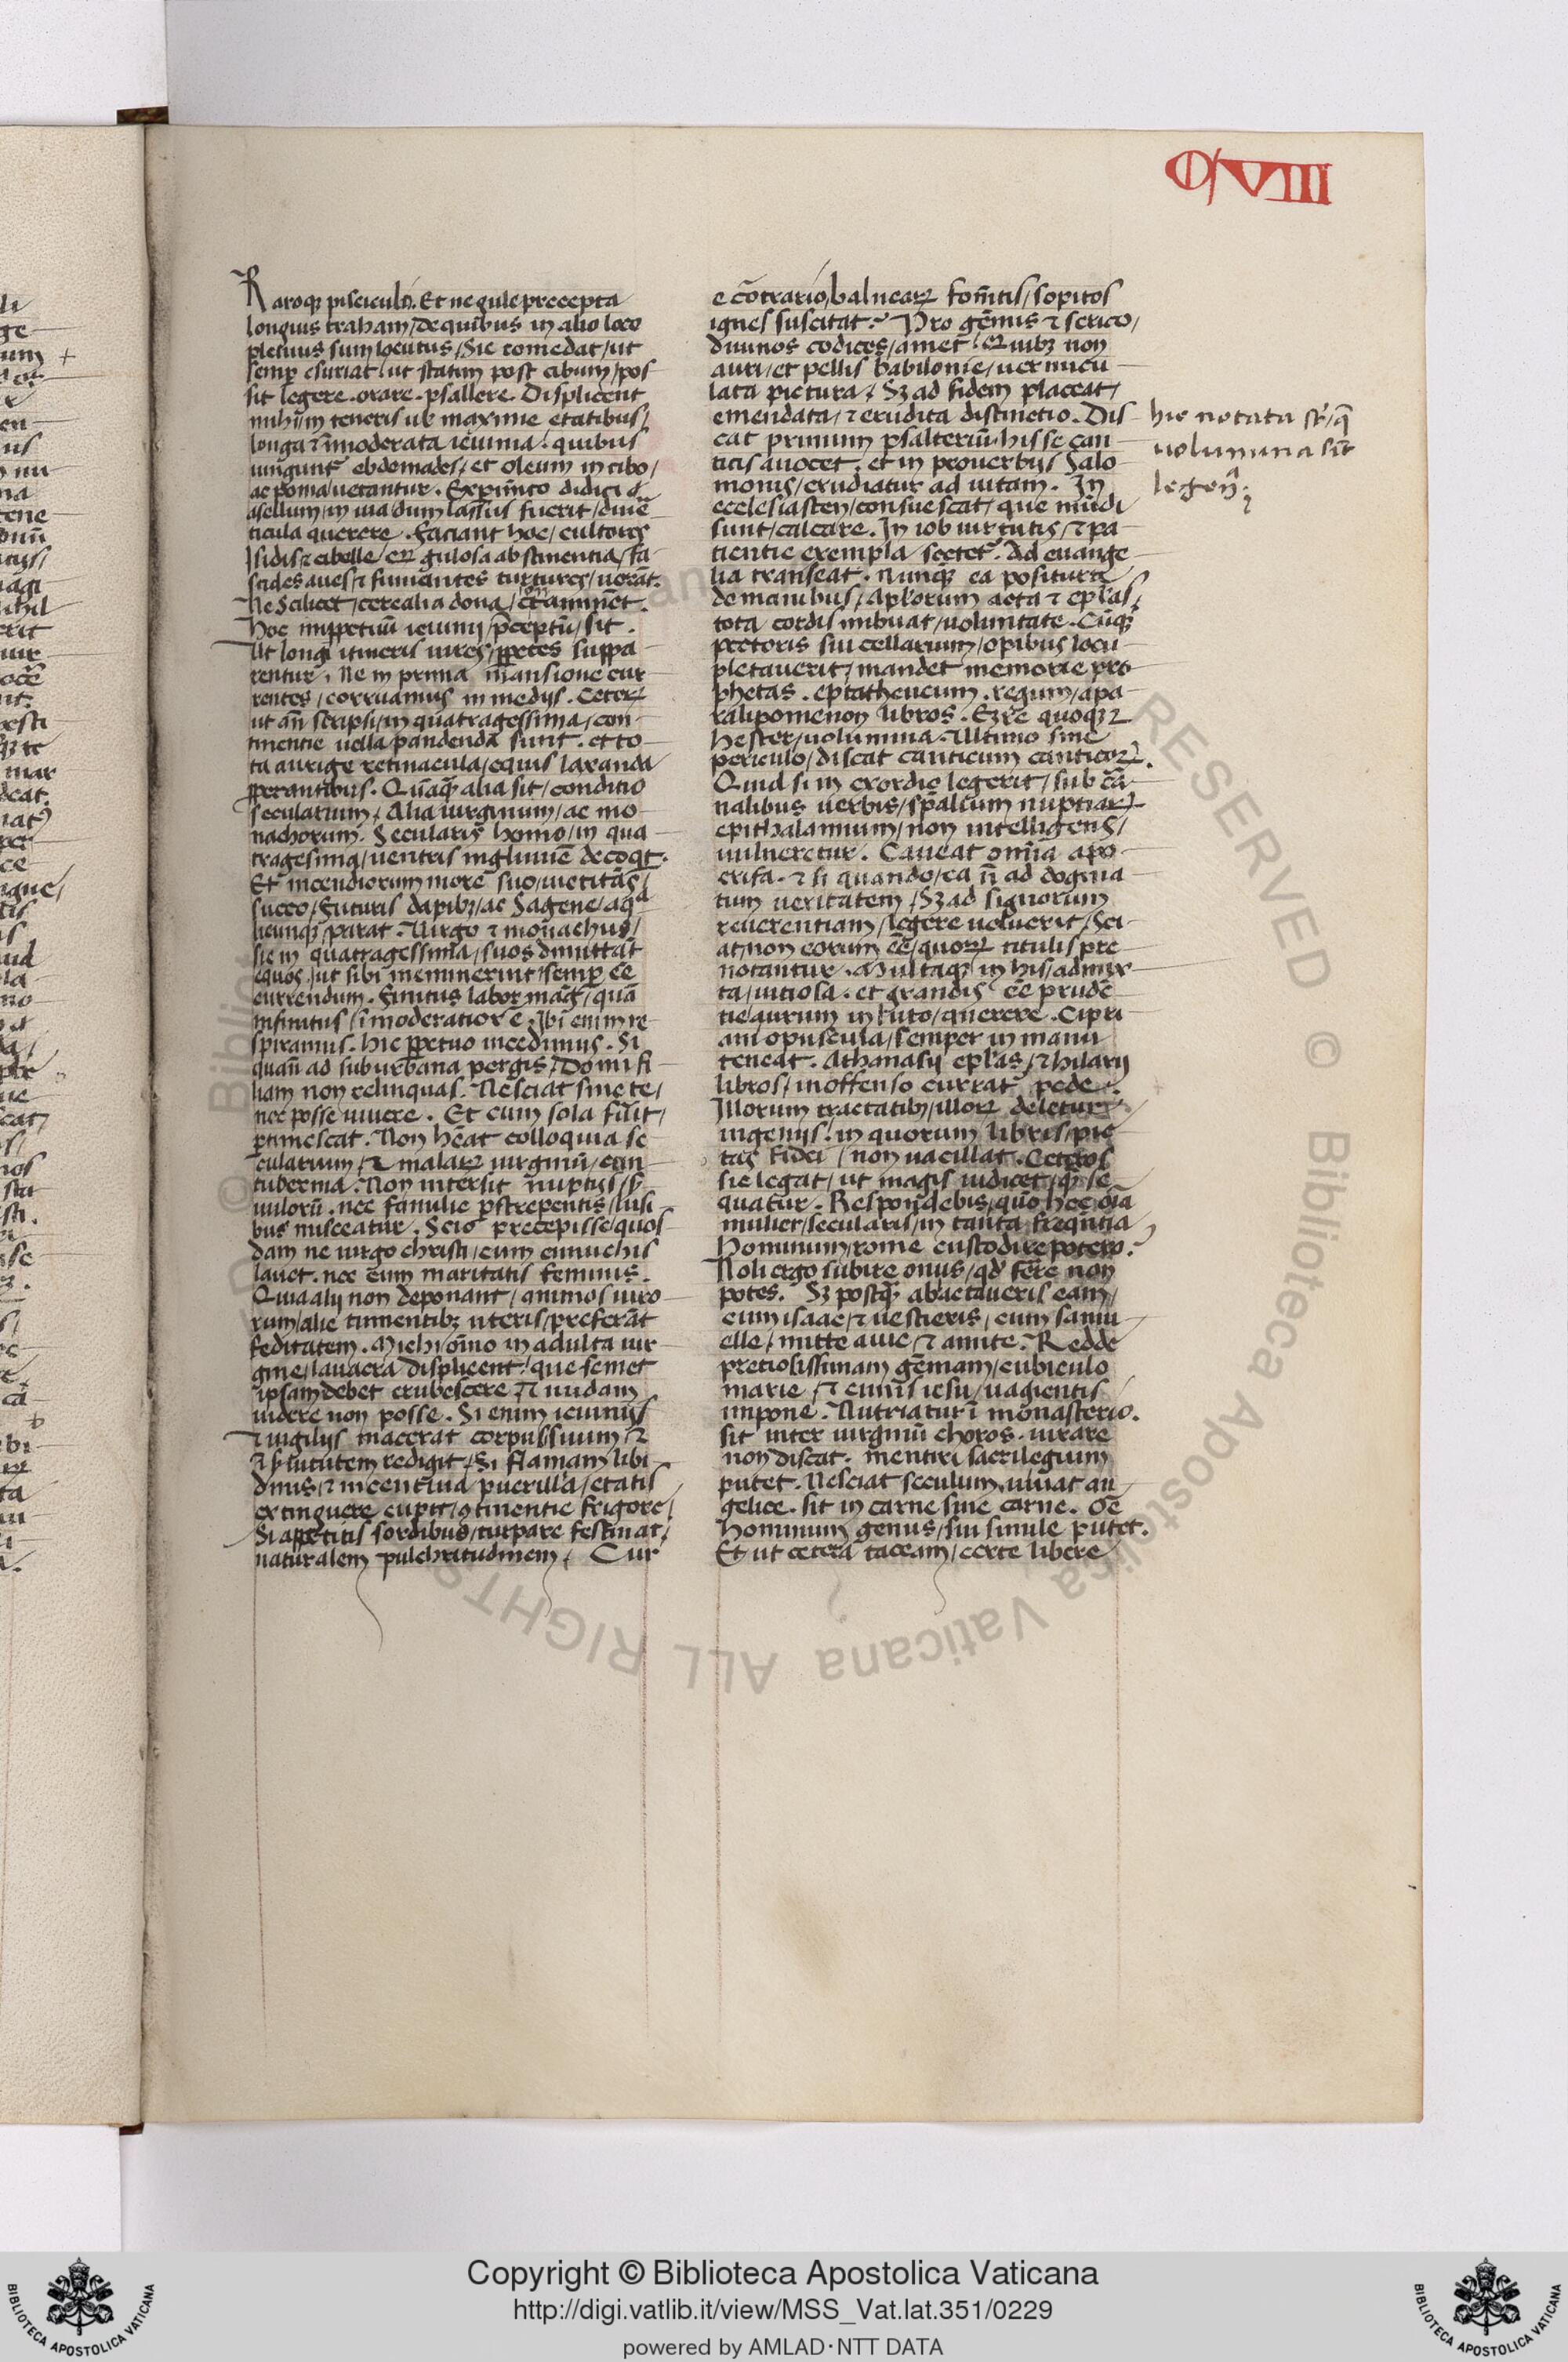 CVIII
Raroqꝫ pisciculis. Et ne gule precepta
longius traham/de quibus in alio loco
plenius sum locutus/Sic comedat/ut
semp̄ esuriat/ut statim post cibum/pos
sit legere. orare. psallere. Displicent
mihi/in teneris ub maxime etatibus/
longa ⁊ īmoderata ieiunia/quibus
iungunt᷑ ebdomades/et oleum in cibo/
ac poma/uetantur. Experimēto didici
asellum/in uia/dum lassus fuerit/diuē
ticula querere. Faciant hoc/cultores
Isidis ⁊ cibelle/
gulosa abstinentia/fa
sides aues ⁊ fumantes turtures/uorāt.
Ne scilicet/cerealia dona/
Hoc
ieiunij/p̄ceptū/sit.
Ut longi itineris uires/ꝑpetes suppa
rentur. Ne in prima mansione cur
rentes/corruamus in medijs. Ceterꝝ
ut añ scripsi/in quatragessima/con
tinentie uella pandenda sunt. et to
ta aurige retinacula/equis laxanda
ꝓperantibus. Quāqꝫ alia sit/conditio
secularium/Alia uirginum/ac mo
nachorum. Secularis homo/in qua
tragesima/uentris ingluuiē decoqt.
Et incendiorum more suo/uictitās/
succo/futuris dapibꝫ/ac Sagene/
parat. Uirgo ⁊ monachus/
sic in quatragessima/suos dimittāt
equos/ut sibi meminerint/semp̄ ēē
currendum. Finitus labor maḡ/quā
infinitus/īmoderatior ē. Ibi enim re
spiramus. hic ꝑpetuo incedimus. Si
quañ ad suburbana pergis/Domi fi
liam non relinquas. Nesciat sine te/
nec posse uiuere. Et cum sola fu͛it/
ꝑtimescat. Non hēat colloquia se
cularium/⁊ malarꝝ uirginū/con
tubernia. Non intersit nuptijs/s̄
uulorū. nec familie ꝑstrepentis/lusi
bus misceatur. Scio precepisse/quos
dam ne uirgo christi/cum eunuchis
lauet. nec cum maritatis feminis.
Quia alij non deponant/animos uiro
rum/alie tumentibꝫ uteris/preferāt
feditatem. Michi/oīno in adulta uir
gine/lauacra displicent/que semet
ipsam debet erubescere/⁊ nudam
uidere non posse. Si enim ieiunijs
⁊ uigilijs macerat corpus suum/⁊
ī s̄uitutem redigit/Si flamam libi
dinis/⁊ incentiua puerilia/etatis
extinguere cupit/ꝯtinentie frigore/
Si appetitis sordibus/turpare festinat/
naturalem pulchritudinem/ Cur
e cōtrario/balnearꝝ fom̄tis/sopitos
ignes suscitat? Pro gēmis ⁊ serico/
diuinos codices/amet/ɪ quibꝫ non
auri/et pellis babilonie/uermicu
lata pictura/Sꝫ ad fidem placeat/
emendata/⁊ erudita distinctio. Dis
cat primum psalterium/his se can
ticis auocet. et in prouerbijs Salo
monis/erudiatur ad uitam. In
ecclesiasten/consuescat/que mūdi
sunt/calcare. In iob uirtutis/⁊ pa
tientie exempla/sectet᷑. Ad euange
lia transeat. Nunqꝫ ea positura
de manibus/Apl̄orum acta ⁊ epl̄as/
tota cordis imbuat/uoluntate. Cūqꝫ
pectoris sui cellarium/opibus locu
pletauerit/mandet memorie pro
phetas. eptatheucum. regum/apa
ralipomenon libros. Ezre quoqꝫ ⁊
hester/uolumina. Ultimo sine
periculo/discat canticum canticorꝝ.
Quid si in exordio legerit/sub cā
nalibus uerbis/sp̄alium nuptiarꝝ
epithalamium/non intelligens/
uulneretur. Caueat omīa apo
crifa. ⁊ si quando/ea ñ ad dogma
tum ueritatem/Sꝫ ad signorum
reuerentiam/legere uoluerit/Sci
at/non eorum ēē/quorꝝ titulis pre
notantur. Multaqꝫ in his/admix
ta/uitiosa. et grandis ēē prudē
tie aurum in luto/querere. Cipri
ani opuscula/semper in manu
teneat. Athanasij epl̄as/⁊ hilarij
libros/inoffenso currat pede.
Illorum tractatibꝫ/illorꝝ deletur
ingenijs. in quorum libris/pie
tas fidei/non uacillat. Ceteros
sic legat/ut magis iudicet/qꝫ se
quatur. Respondebis/quō hec oīa
mulier/secularis/in tanta freqntia
hominum/rome custodire potero?
Noli ergo subire onus/qd ferre non
potes. Sꝫ postqꝫ ablactaueris eam/
cum isaac/⁊ uestieris/cum samu
elle/mitte auie/⁊ amite. Redde
preciosissimam gēmam/cubiculo
marie/⁊ cunis iesu/uagientis
impone. Nutriatur ī monasterio.
sit inter uirginū choros. iurare
non discat. mentiri sacrilegium
putet. Nesciat seculum. uiuat an
gelice. sit in carne sine carne. Oē
hominum genus/sui simile putet.
Et ut cetera taceam/certe libere
hic notata st̄/q̄
uolumina sīt
legeñ.
Copyright © Biblioteca Apostolica Vaticana
http://digi.vatlib.it/view/MSS_Vat.lat.351/0229
powered by AMLAD·NTT DATA
BIBLIOTECA APOSTOLICA VATICANA
BIBLIOTECA APOSTOLICA VATICANA